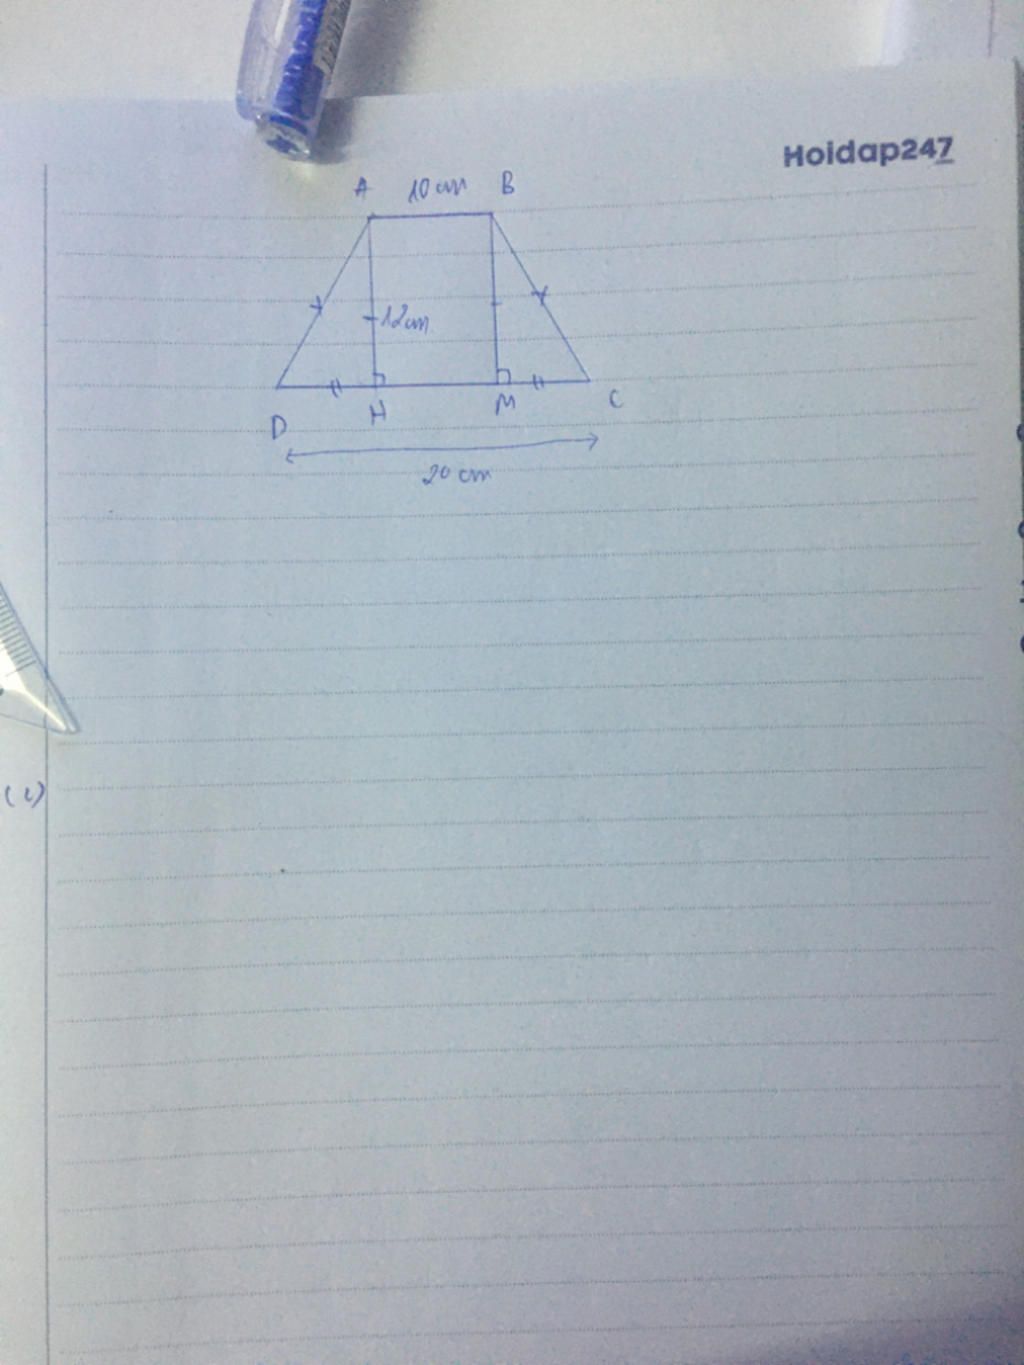 Hoidap247
A 10 cm B
12 cm
D H M C
20 cm
(L)